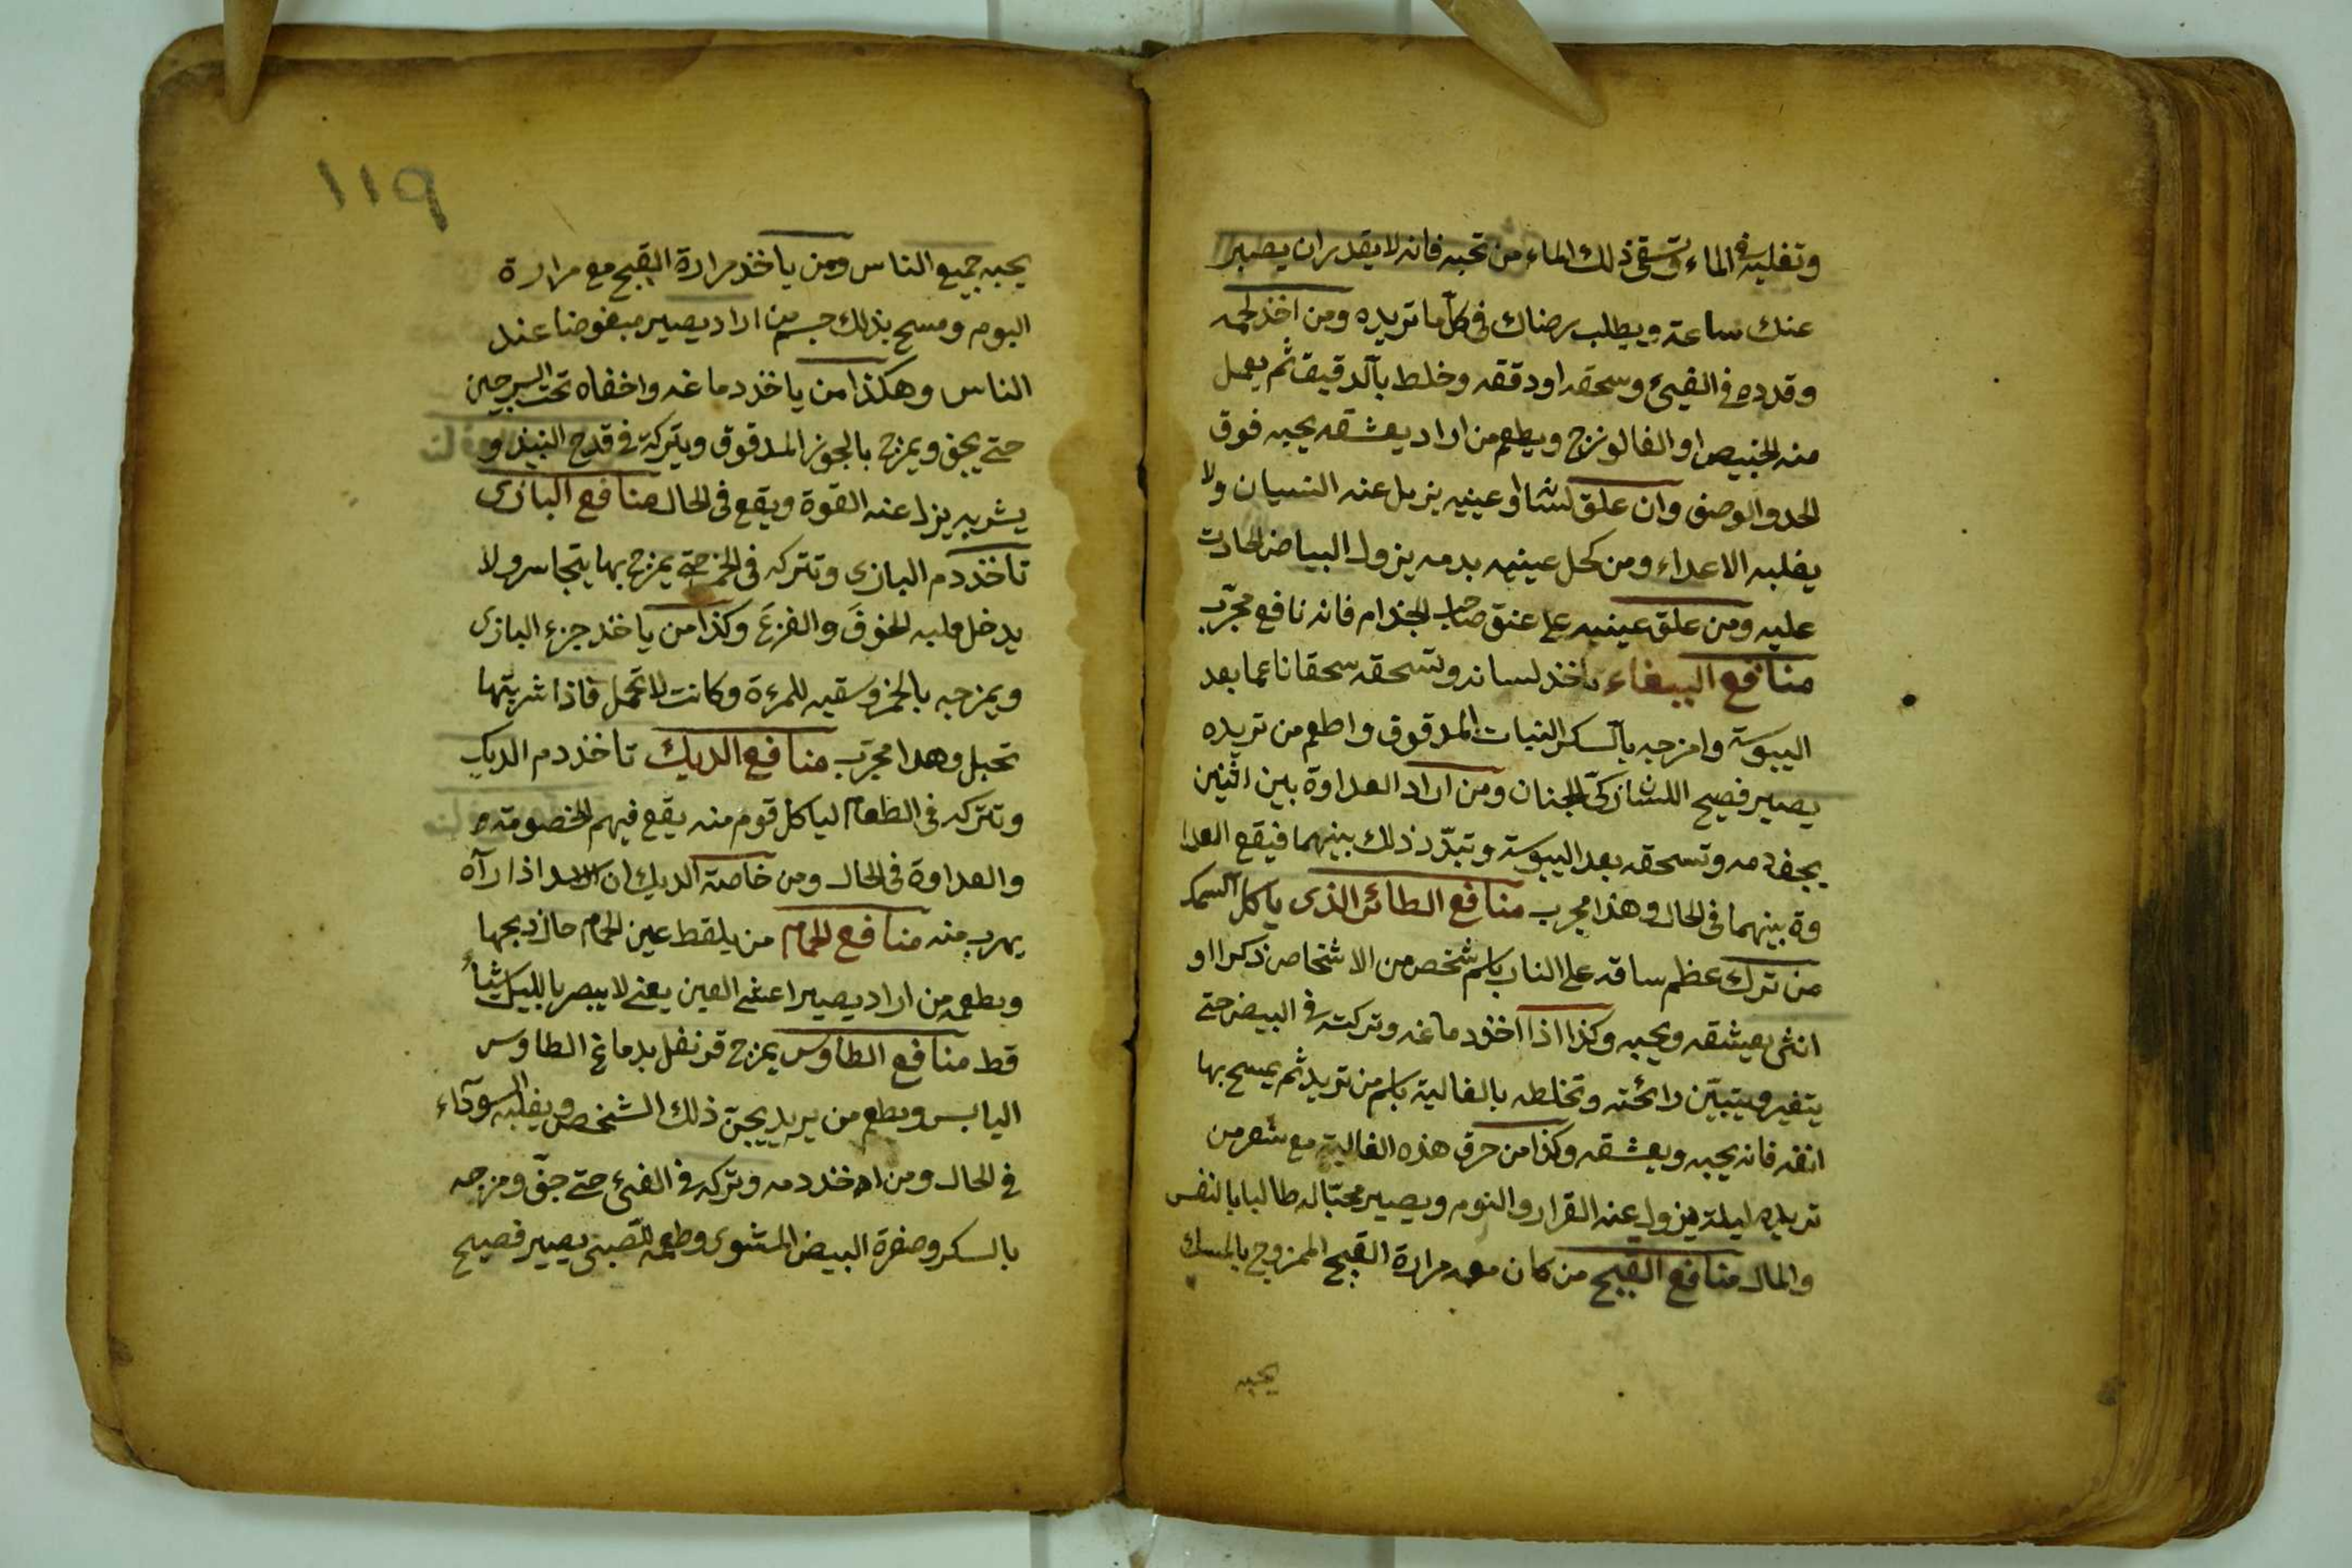 وتغليه في الماء وتسقى ذلك الماء من تحبه فانه لا يقدر ان يصبر
عنك ساعة ويطلب رضاك في كل ما تريده ومن اخذ لحمه
وقدده في الفيئ وسحقه او دققه وخلط بالدقيق ثم يعمل
منه الخبيص او الفالونزج ويطعم من اراد يعشقه يحبه فوق
الحد والوصف وان علق لسانا او عينيه يزيل عنه النسيان ولا
يغلبه الاعداء ومن كحل عينيه بدمه يزول البياض الحادث
عليه ومن علق عينيه على عنق صاحب الجذام فانه نافع مجرّب
منافع الببغاء تاخذ لسانه وتسحقه سحقا ناعما بعد
اليبوسة وامزجه بالسكر النبات المدقوق واطعم من تريده
يصير فصيح اللسان زكىّ الجنان ومن اراد العداوة بين اثنين
يجفف دمه وتسحقه بعد اليبوسة وتبدّر ذلك بينهما فيقع العدا
وة بينهما في الحال وهذا مجرب منافع الطائر الذى ياكل السمك
من ترك عظم ساقه على النار باسم شخص من الاشخاص ذكرا او
انثى يعيشقه ويحبه وكذا اذا اخذ دماغه وتركته في البيض حتى
يتغير ويتبيّن رائحته وتخلطه بالغالية باسم من تريد ثم يمسح بها
انفه فانه يحبه ويعشقه وكذا من حرق هذه الغالية مع شعر من
تريده ليلة يزول عنه القرار والنوم ويصير محبّا له طالبا بالنفس
والمال منافع القبج من كان معه مرارة القبج الممزوج بالمسك
يحبه
١١٩
يحبه جميع الناس ومن ياخذ مرارة القبج مع مرارة
البوم ومسح بذلك جسم من اراد يصير مبغوضا عند
الناس وهكذا من ياخذ دماغه واخفاه تحت السرجين
حتى يجف ويمزج بالجوز المدقوق ويتركه في قدح النبيذ و
يشربه يزل عنه القوة ويقع في الحال منافع البازى
تاخذ دم البازى وتتركه في الخمر حتى يمزج بها يتجاسر ولا
يدخل قلبه الخوفَ والفزعَ وكذا من ياخذ جزء البازى
ويمزجه بالخمر وسقيه للمرءة وكانت لا تحمل فاذا شربتها
تحبل وهدا مجرّب منافع الديك تاخذ دم الديك
وتتركه في الطعام لياكل قوم منه يقع فيهم الخصومة
والعداوة في الحال ومن خاصة الديك ان الاسد اذا رآه
يهرب منه منافع الحمام من يلقط عين الحمام حال ذبحها
ويطعمه من اراد يصير اعشى العين يعنى لا يبصر بالليل شيأ
قط منافع الطاوس يمزج قرنفل بدماغ الطاوس
اليابس ويطعم من يريد يجنّ ذلك الشخص ويغلبه السودآء
في الحال ومن اخذ دمه وتركه في الفيئ حتى جفّ ومزجه
بالسكر وصفرة البيض المشوى وطعمه للصبى يصير فصيح